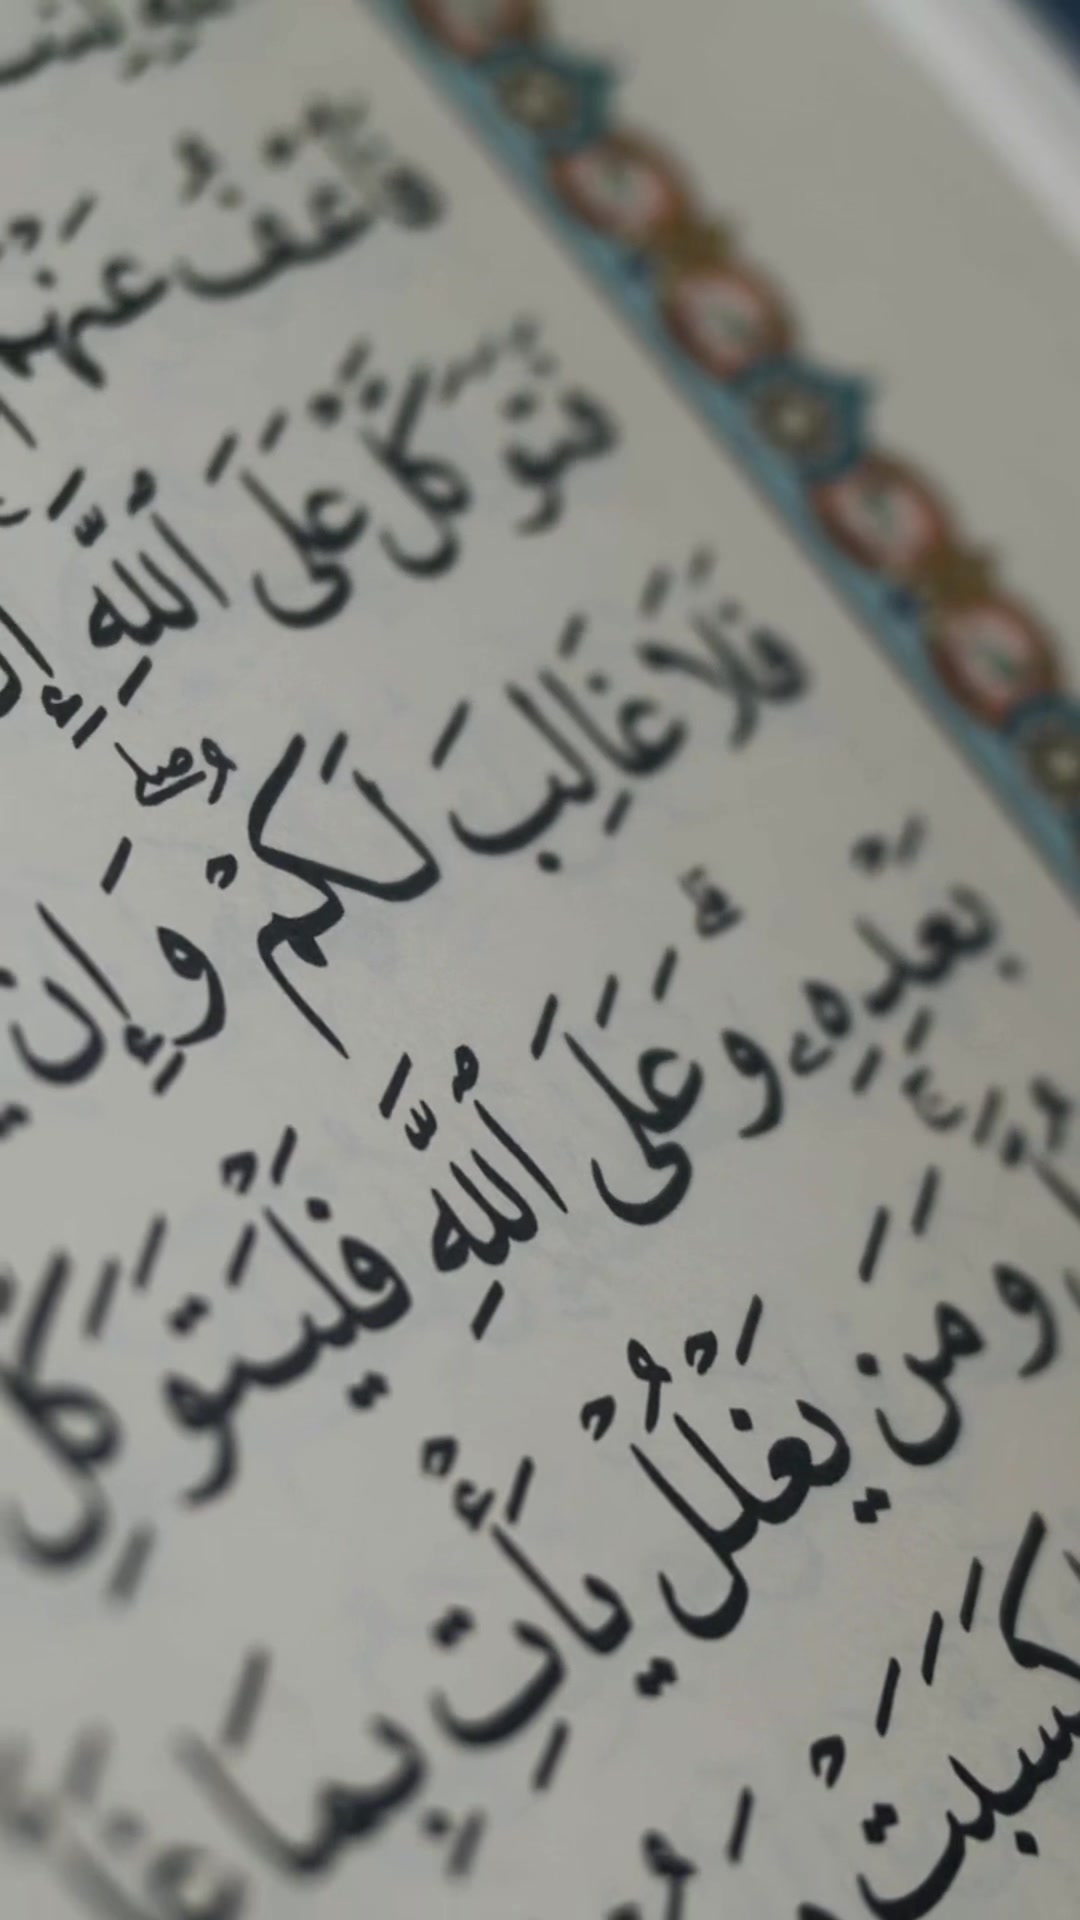 فَٱعْفُ عَنْهُمْ
فَتَوَكَّلْ عَلَى ٱللَّهِ إِ
فَلَا غَالِبَ لَكُمْ ۖ وَإِن
بَعْدِهِۦ ۗ وَعَلَى ٱللَّهِ فَلْيَتَوَكَّلِ
وَمَن يَغْلُلْ يَأْتِ بِمَا غَلَّ
كَسَبَتْ